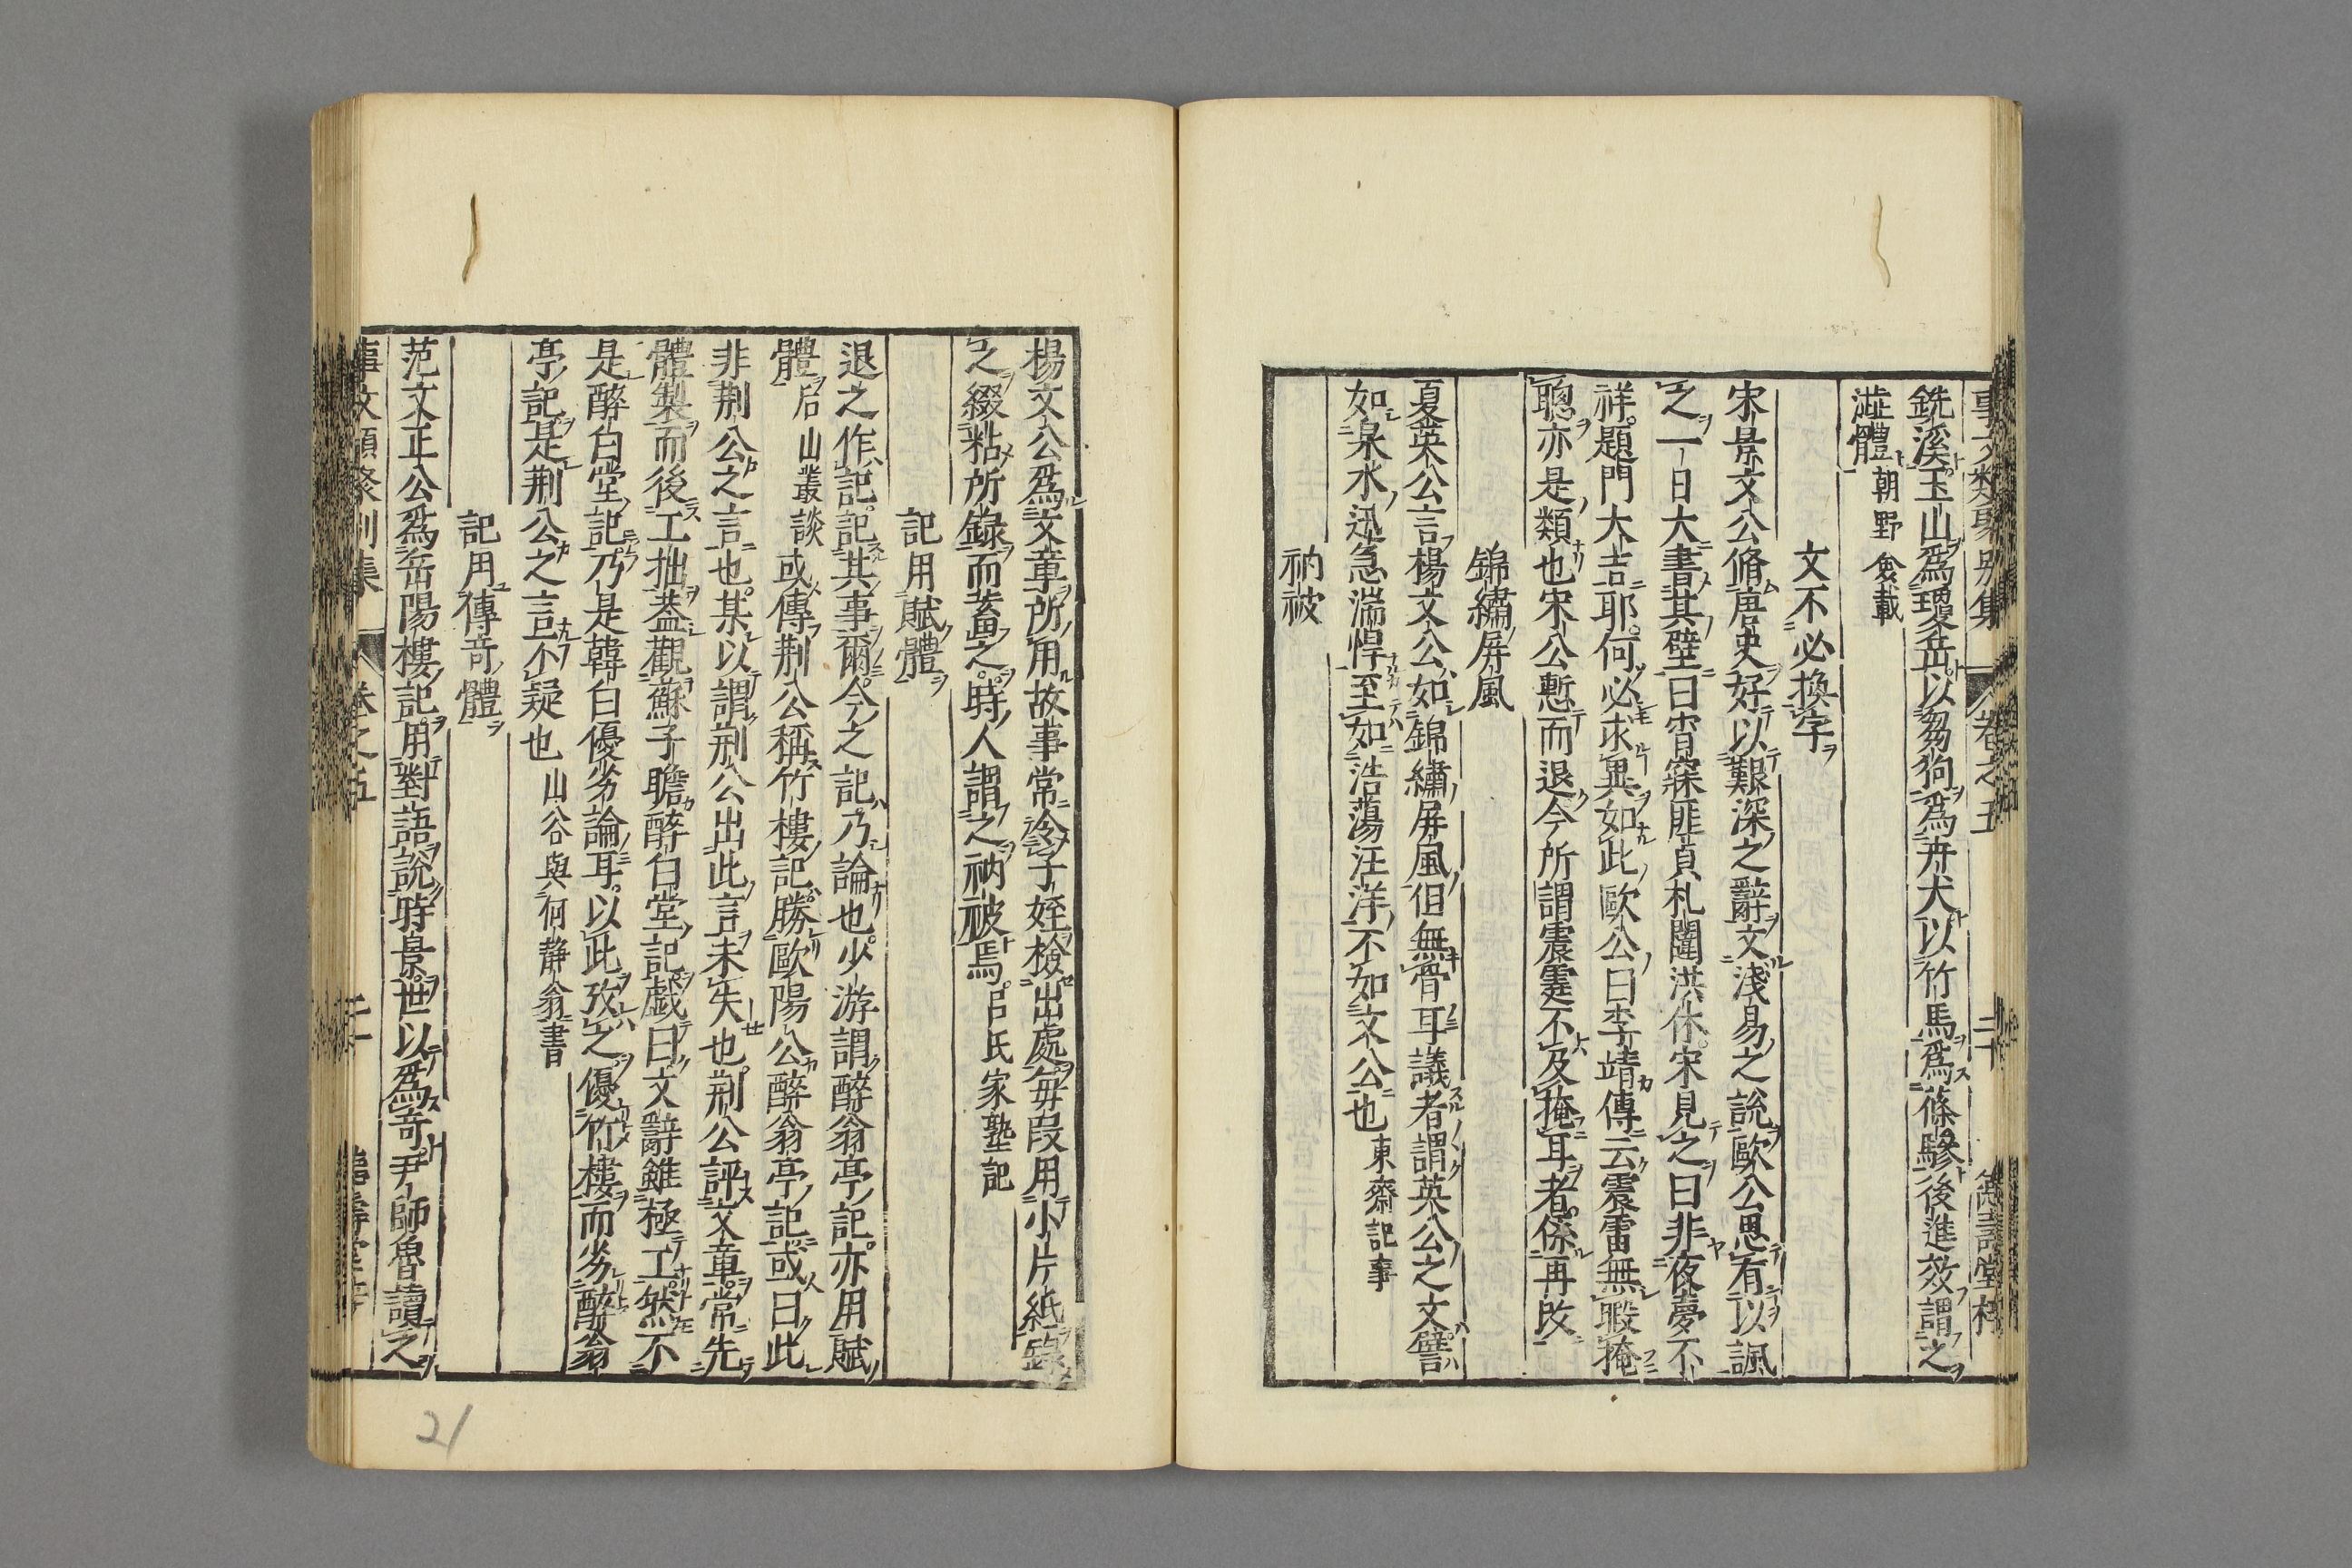 事文類聚別集 卷之五 二十
銑溪玉山爲瓊岳以芻狗爲卉犬以竹馬爲篠驂後進效謂之
澁體朝野僉載
文不必換字
宋景文公脩唐史好以艱深之辭文淺易之說歐公思有以諷
之一日大書其壁曰宵寐匪貞札闥洪休宋見之曰非夜夢不
祥題門大吉耶何必求異如此歐公曰李靖傳云震雷無暇掩
聰亦是類也宋公慙而退今所謂震霆不及掩耳者係再改
錦繡屏風
夏英公言楊文公如錦繡屏風但無骨耳議者謂英公之文譬
如泉水迅急湍悍至如浩蕩汪洋不如文公也東齋記事
衲被
楊文公爲文章所用故事常令子姪檢出處毎段用小片紙錄
之綴粘所錄而蓄之時人謂之衲被焉呂氏家塾記
記用賦體
退之作記記其事爾今之記乃論也少游謂醉翁亭記亦用賦
體后山叢談或傳荆公稱竹樓記勝歐陽公醉翁亭記或曰此
非荆公之言也某以謂荆公出此言未失也荆公評文章常先
體製而後工拙葢觀蘇子瞻醉白堂記戲曰文辭雖極工然不
是醉白堂記乃是韓白優劣論耳以此攷之優竹樓而劣醉翁
亭記是荆公之言不疑也山谷與何靜翁書
記用傳奇體
范文正公爲岳陽樓記用對語說時景世以爲奇尹師魯讀之
事文類聚別集 卷之五
21